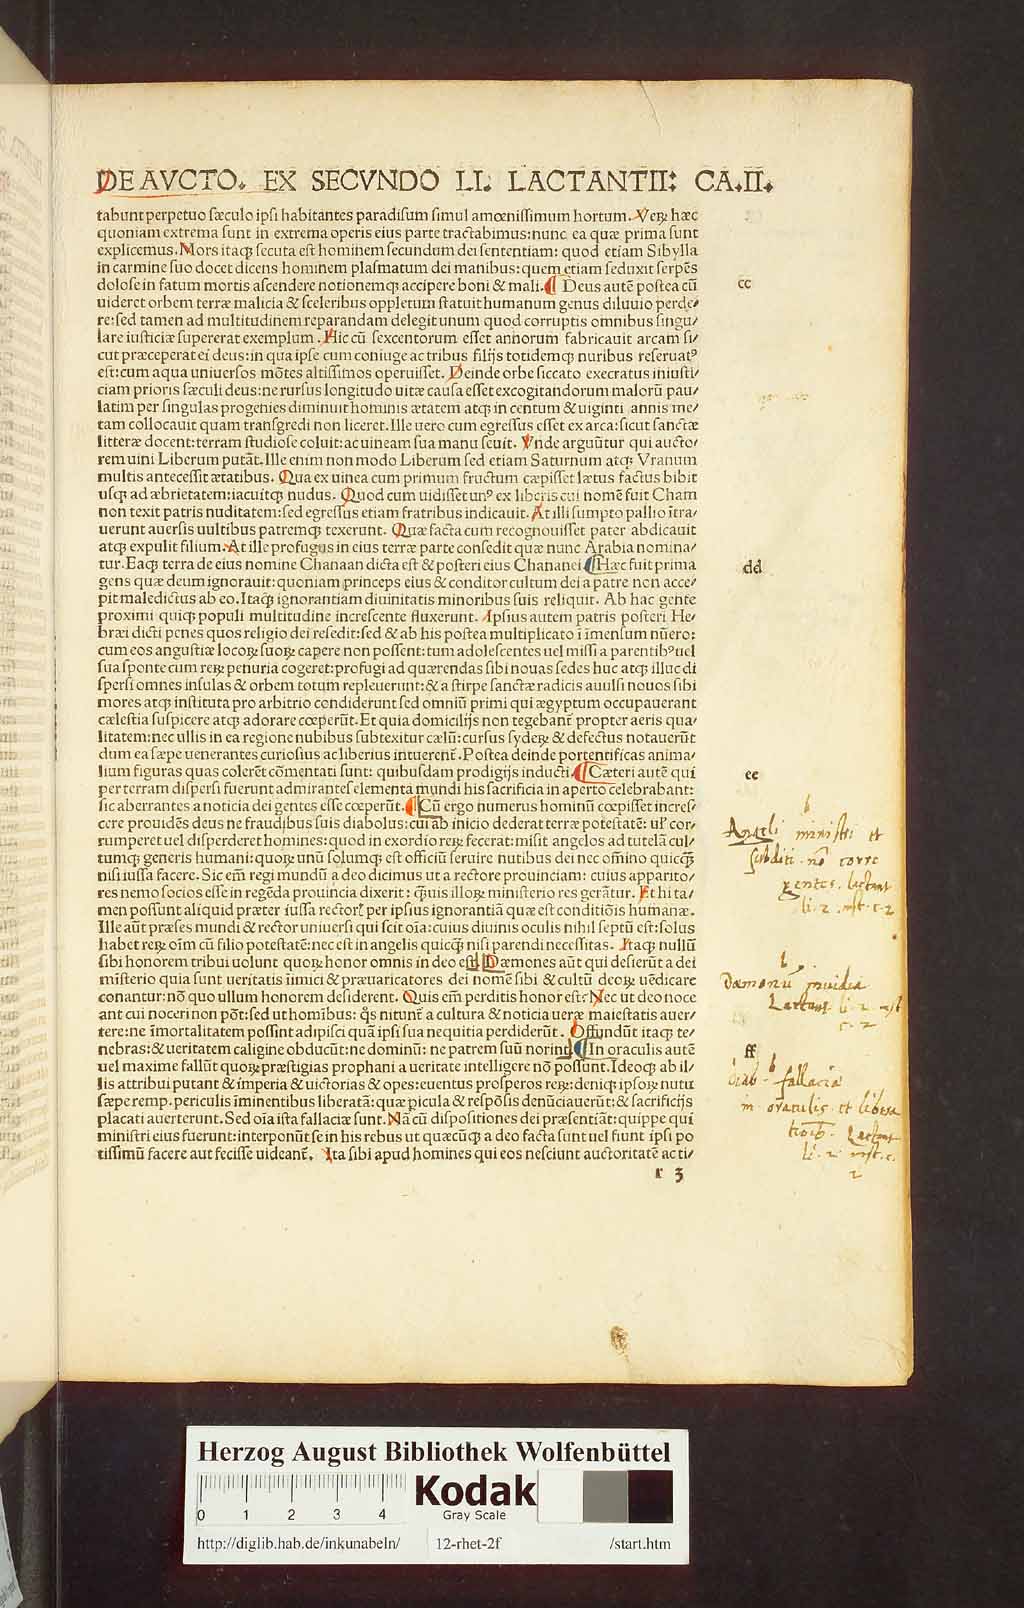 DE AVCTO. EX SECVNDO LI. LACTANTII: CA.II.
tabunt perpetuo sæculo ipsi habitantes paradisum simul amœnissimum hortum. Veꝝ hæc
quoniam extrema sunt in extrema operis eius parte tractabimus: nunc ea quæ prima sunt
explicemus. Mors itaqꝫ secuta est hominem secundum dei sententiam: quod etiam Sibylla
in carmine suo docet dicens hominem plasmatum dei manibus: quem etiam seduxit serpēs
dolose in fatum mortis ascendere notionemqꝫ accipere boni & mali. ¶ Deus autē postea cū
cc
uideret orbem terræ malicia & sceleribus oppletum statuit humanum genus diluuio perde/
re: sed tamen ad multitudinem reparandam delegit unum quod corruptis omnibus singu/
lare iusticiæ supererat exemplum. Hic cū sexcentorum esset annorum fabricauit arcam si/
cut præceperat ei deus: in qua ipse cum coniuge ac tribus filijs totidemqꝫ nuribus reseruatꝰ
est: cum aqua uniuersos mōtes altissimos operuisset. Deinde orbe siccato execratus iniusti/
ciam prioris sæculi deus: ne rursus longitudo uitæ causa esset excogitandorum malorū pau/
latim per singulas progenies diminuit hominis ætatem atqꝫ in centum & uiginti annis me/
tam collocauit quam transgredi non liceret. Ille uero cum egressus esset ex arca: sicut sanctæ
litteræ docent: terram studiose coluit: ac uineam sua manu seuit. Vnde arguūtur qui aucto/
rem uini Liberum putāt. Ille enim non modo Liberum sed etiam Saturnum atqꝫ Vranum
multis antecessit ætatibus. Qua ex uinea cum primum fructum cæpisset lætus factus bibit
usqꝫ ad æbrietatem: iacuitqꝫ nudus. Quod cum uidisset unꝰ ex liberis cui nomē fuit Cham
non texit patris nuditatem: sed egressus etiam fratribus indicauit. At illi sumpto pallio ītra/
uerunt auersis uultibus patremqꝫ texerunt. Quæ facta cum recognouisset pater abdicauit
atqꝫ expulit filium. At ille profugus in eius terræ parte consedit quæ nunc Arabia nomina/
tur. Eaqꝫ terra de eius nomine Chanaan dicta est & posteri eius Chananei ¶ Hæc fuit prima
dd
gens quæ deum ignorauit: quoniam princeps eius & conditor cultum dei a patre non acce/
pit maledictus ab eo. Itaqꝫ ignorantiam diuinitatis minoribus suis reliquit. Ab hac gente
proximi quiqꝫ populi multitudine increscente fluxerunt. Ipsius autem patris posteri He/
bræi dicti penes quos religio dei resedit: sed & ab his postea multiplicato ī īmensum nūero:
cum eos angustiæ locoꝝ suoꝝ capere non possent: tum adolescentes uel missi a parentibꝰ uel
sua sponte cum reꝝ penuria cogeret: profugi ad quærendas sibi nouas sedes huc atqꝫ illuc di
spersi omnes insulas & orbem totum repleuerunt: & a stirpe sanctæ radicis auulsi nouos sibi
mores atqꝫ instituta pro arbitrio condiderunt sed omniū primi qui ægyptum occupauerant
cælestia suspicere atqꝫ adorare cœperūt. Et quia domicilijs non tegebant̄ propter aeris qua/
litatem: nec ullis in ea regione nubibus subtexitur cælū: cursus sydeꝝ & defectus notauerūt
dum ea sæpe uenerantes curiosius ac liberius intuerent̄. Postea deinde portentificas anima/
lium figuras quas colerēt cōmentati sunt: quibusdam prodigijs inducti. ¶ Cæteri autē qui
ee
per terram dispersi fuerunt admirantes elementa mundi his sacrificia in aperto celebrabant:
sic aberrantes a noticia dei gentes esse cœperūt. ¶ Cū ergo numerus hominū cœpisset incres/
cere prouidēs deus ne fraudibus suis diabolus: cui ab inicio dederat terræ potestatē: ul' cor/
rumperet uel disperderet homines: quod in exordio reꝝ fecerat: misit angelos ad tutelā cul/
tumqꝫ generis humani: quoꝝ unū solumqꝫ est officiū seruire nutibus dei nec oīno quicqꝫ̄
nisi iussa facere. Sic em̄ regi mundū a deo dicimus ut a rectore prouinciam: cuius apparito/
res nemo socios esse in regēda prouincia dixerit: qꝫ̄uis illoꝝ ministerio res gerātur. Et hi ta/
men possunt aliquid præter iussa rector⁹ per ipsius ignorantiā quæ est conditiōis humanæ.
Ille aūt præses mundi & rector uniuersi qui scit oīa: cuius diuinis oculis nihil septū est: solus
habet reꝝ oīm cū filio potestatē: nec est in angelis quicqꝫ̄ nisi parendi necessitas. Itaqꝫ nullū
sibi honorem tribui uolunt quoꝝ honor omnis in deo est. Dæmones aūt qui desierūt a dei
misterio quia sunt ueritatis īimici & præuaricatores dei nomē sibi & cultū deoꝝ uēdicare
conantur: nō quo ullum honorem desiderent. Quis em̄ perditis honor est? Nec ut deo noce
ant cui noceri non pōt: sed ut homībus: q̄s nitunt̄ a cultura & noticia ueræ maiestatis auer/
tere: ne īmortalitatem possint adipisci quā ipsi sua nequitia perdiderūt. Offundūt itaqꝫ te/
nebras: & ueritatem caligine obducūt: ne dominū: ne patrem suū norint. ¶ In oraculis autē
ff
uel maxime fallūt quoꝝ præstigias prophani a ueritate intelligere nō possunt. Ideoqꝫ ab il/
lis attribui putant & imperia & uictorias & opes: euentus prosperos reꝝ: deniqꝫ ipsoꝝ nutu
sæpe remp. periculis īminentibus liberatā: quæ picula & respōsis denūciauerūt: & sacrificijs
placati auerterunt. Sed oīa ista fallaciæ sunt. Nā cū dispositiones dei præsentiāt: quippe qui
ministri eius fuerunt: interponūt se in his rebus ut quæcūqꝫ a deo facta sunt uel fiunt ipsi po
tissimū facere aut fecisse uideant̄. Ita sibi apud homines qui eos nesciunt auctoritatē acti/
r 3
b
Angeli ministri et
subditi. nō corre
gentes. lactant
li. 2. inst. c. 2
b
Dæmonū inuidia
Lactant li. 2. inst
c. 2
b
diab. fallacia
in oraculis et libera
Lactant
li. 2. inst. c.
2
Herzog August Bibliothek Wolfenbüttel
0 1 2 3 4
Kodak
Gray Scale
http://diglib.hab.de/inkunabeln/ 12-rhet-2f /start.htm